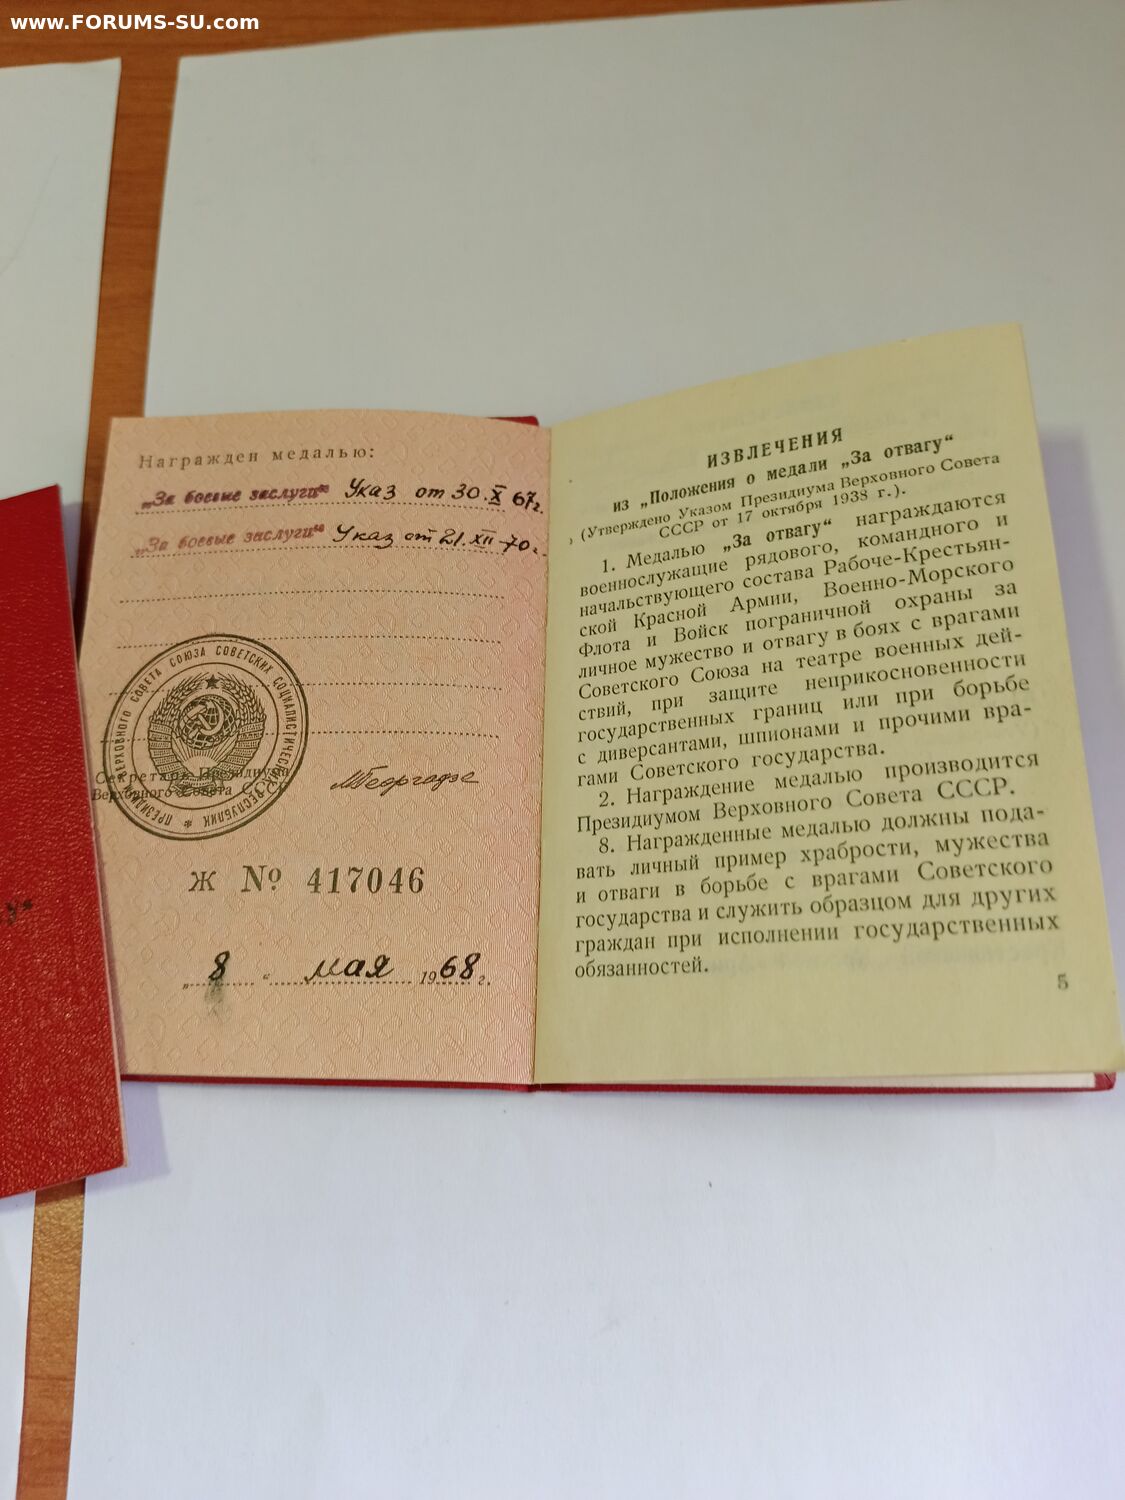 www.FORUMS-SU.com
Награжден медалью:
„За боевые заслуги“ Указ от 30.X 67г.
„За боевые заслуги“ Указ от 21.XII-70г.
ПРЕЗИДИУМ ВЕРХОВНОГО СОВЕТА СОЮЗА СОВЕТСКИХ СОЦИАЛИСТИЧЕСКИХ РЕСПУБЛИК *
Секретарь Президиума
Верховного Совета СССР
МГеоргадзе
Ж № 417046
„ 8 “ мая 1968 г.
у“
ИЗВЛЕЧЕНИЯ
из „Положения о медали „За отвагу“
(Утверждено Указом Президиума Верховного Совета
СССР от 17 октября 1938 г.).
1. Медалью „За отвагу“ награждаются
военнослужащие рядового, командного и
начальствующего состава Рабоче-Крестьян-
ской Красной Армии, Военно-Морского
Флота и Войск пограничной охраны за
личное мужество и отвагу в боях с врагами
Советского Союза на театре военных дей-
ствий, при защите неприкосновенности
государственных границ или при борьбе
с диверсантами, шпионами и прочими вра-
гами Советского государства.
2. Награждение медалью производится
Президиумом Верховного Совета СССР.
8. Награжденные медалью должны пода-
вать личный пример храбрости, мужества
и отваги в борьбе с врагами Советского
государства и служить образцом для других
граждан при исполнении государственных
обязанностей.
5